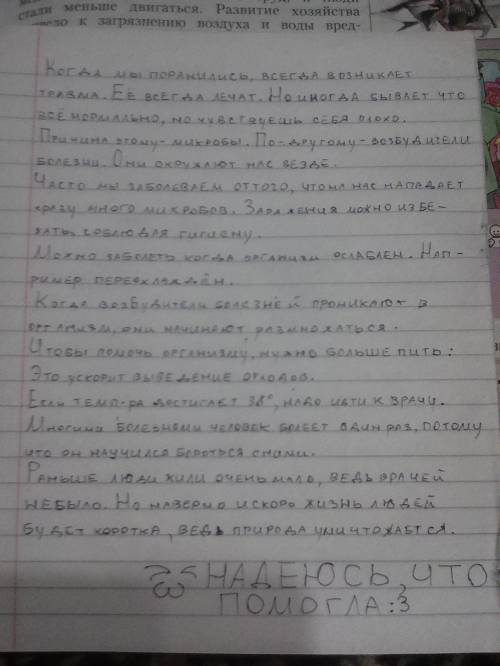 стали меньше двигаться. Развитие хозяйства
к загрязнению воздуха и воды вред-
Когда мы поранились, всегда возникает
травма. Её всегда лечат. Но иногда бывает что
всё нормально, но чувствуешь себя плохо.
Причина этому-микробы. По-другому-возбудители
болезни. Они окружают нас везде.
Часто мы заболеваем оттого, что на нас нападает
сразу много микробов. Заражения можно избе-
жать, соблюдая гигиену.
Можно заболеть когда организм ослаблен. Нап-
ример переохлаждён.
Когда возбудители болезней проникают в
организм, они начинают размножаться.
Чтобы помочь организму, нужно больше пить:
Это ускорит выведение отходов.
Если темп-ра достигает 38°, надо идти к врачу.
Многими болезнями человек болеет один раз, потому
что он научился бороться с ними.
Раньше люди жили очень мало, ведь врачей
не было. Но наверно и скоро жизнь людей
будет коротка, ведь природа уничтожается.
НАДЕЮСЬ, ЧТО
ПОМОГЛА :3